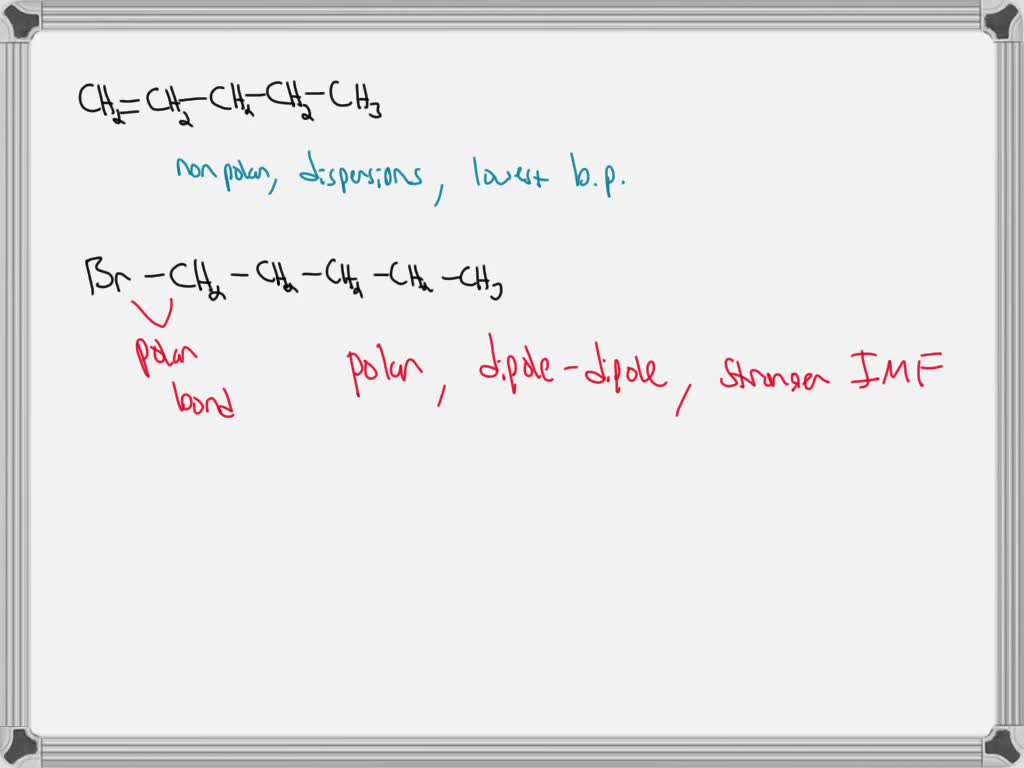 CH₂=CH₂-CH₂-CH₂-CH₃
nonpolar, dispersions, lowest b.p.
Br-CH₂-CH₂-CH₂-CH₂-CH₃
polar bond
polar, dipole-dipole, stronger IMF